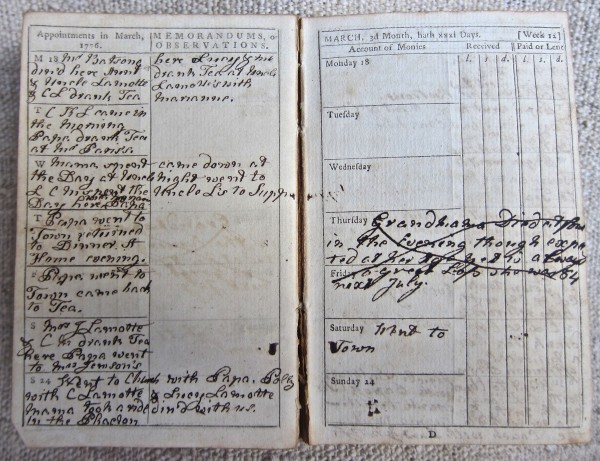 Appointments in March, 1776.
MEMORANDUMS, or OBSERVATIONS.
M 18 Mrs Batson
din'd here Aunt
& Uncle Lamotte
& CL drank Tea
here Lucy & me
drank Tea at Uncle
Lamotte's with
Marianne.
T C & L came in
the Morning
Papa drank Tea
at Mr
W Mama spent
the Day at Uncle
L C Mis spent the
Day here Papa
came down at
night went to
Uncle Lis to Supper
T Papa went to
Town returned
to Dinner. At
Home evening.
F Papa went to
Town came back
to Tea.
S Mrs J Lamotte
& C M drank Tea
here Papa went
to Mrs Jemson's
S 24 Went to Church with Papa, Patty
with C Lamotte & Lucy Lamotte
Mama took a ride din'd with us.
in the Phaeton
MARCH, 3d Month, hath xxxi Days.
[Week 12]
Account of Monies
Received
Paid or Lent
l. s. d. l. s. d.
Monday 18
Tuesday
Wednesday
Thursday Grandmama Died at four
in the Evening though expec
ted at her age yet is always
Friday a great Loss she was 84
next July.
Saturday Went to
Town
Sunday 24
D